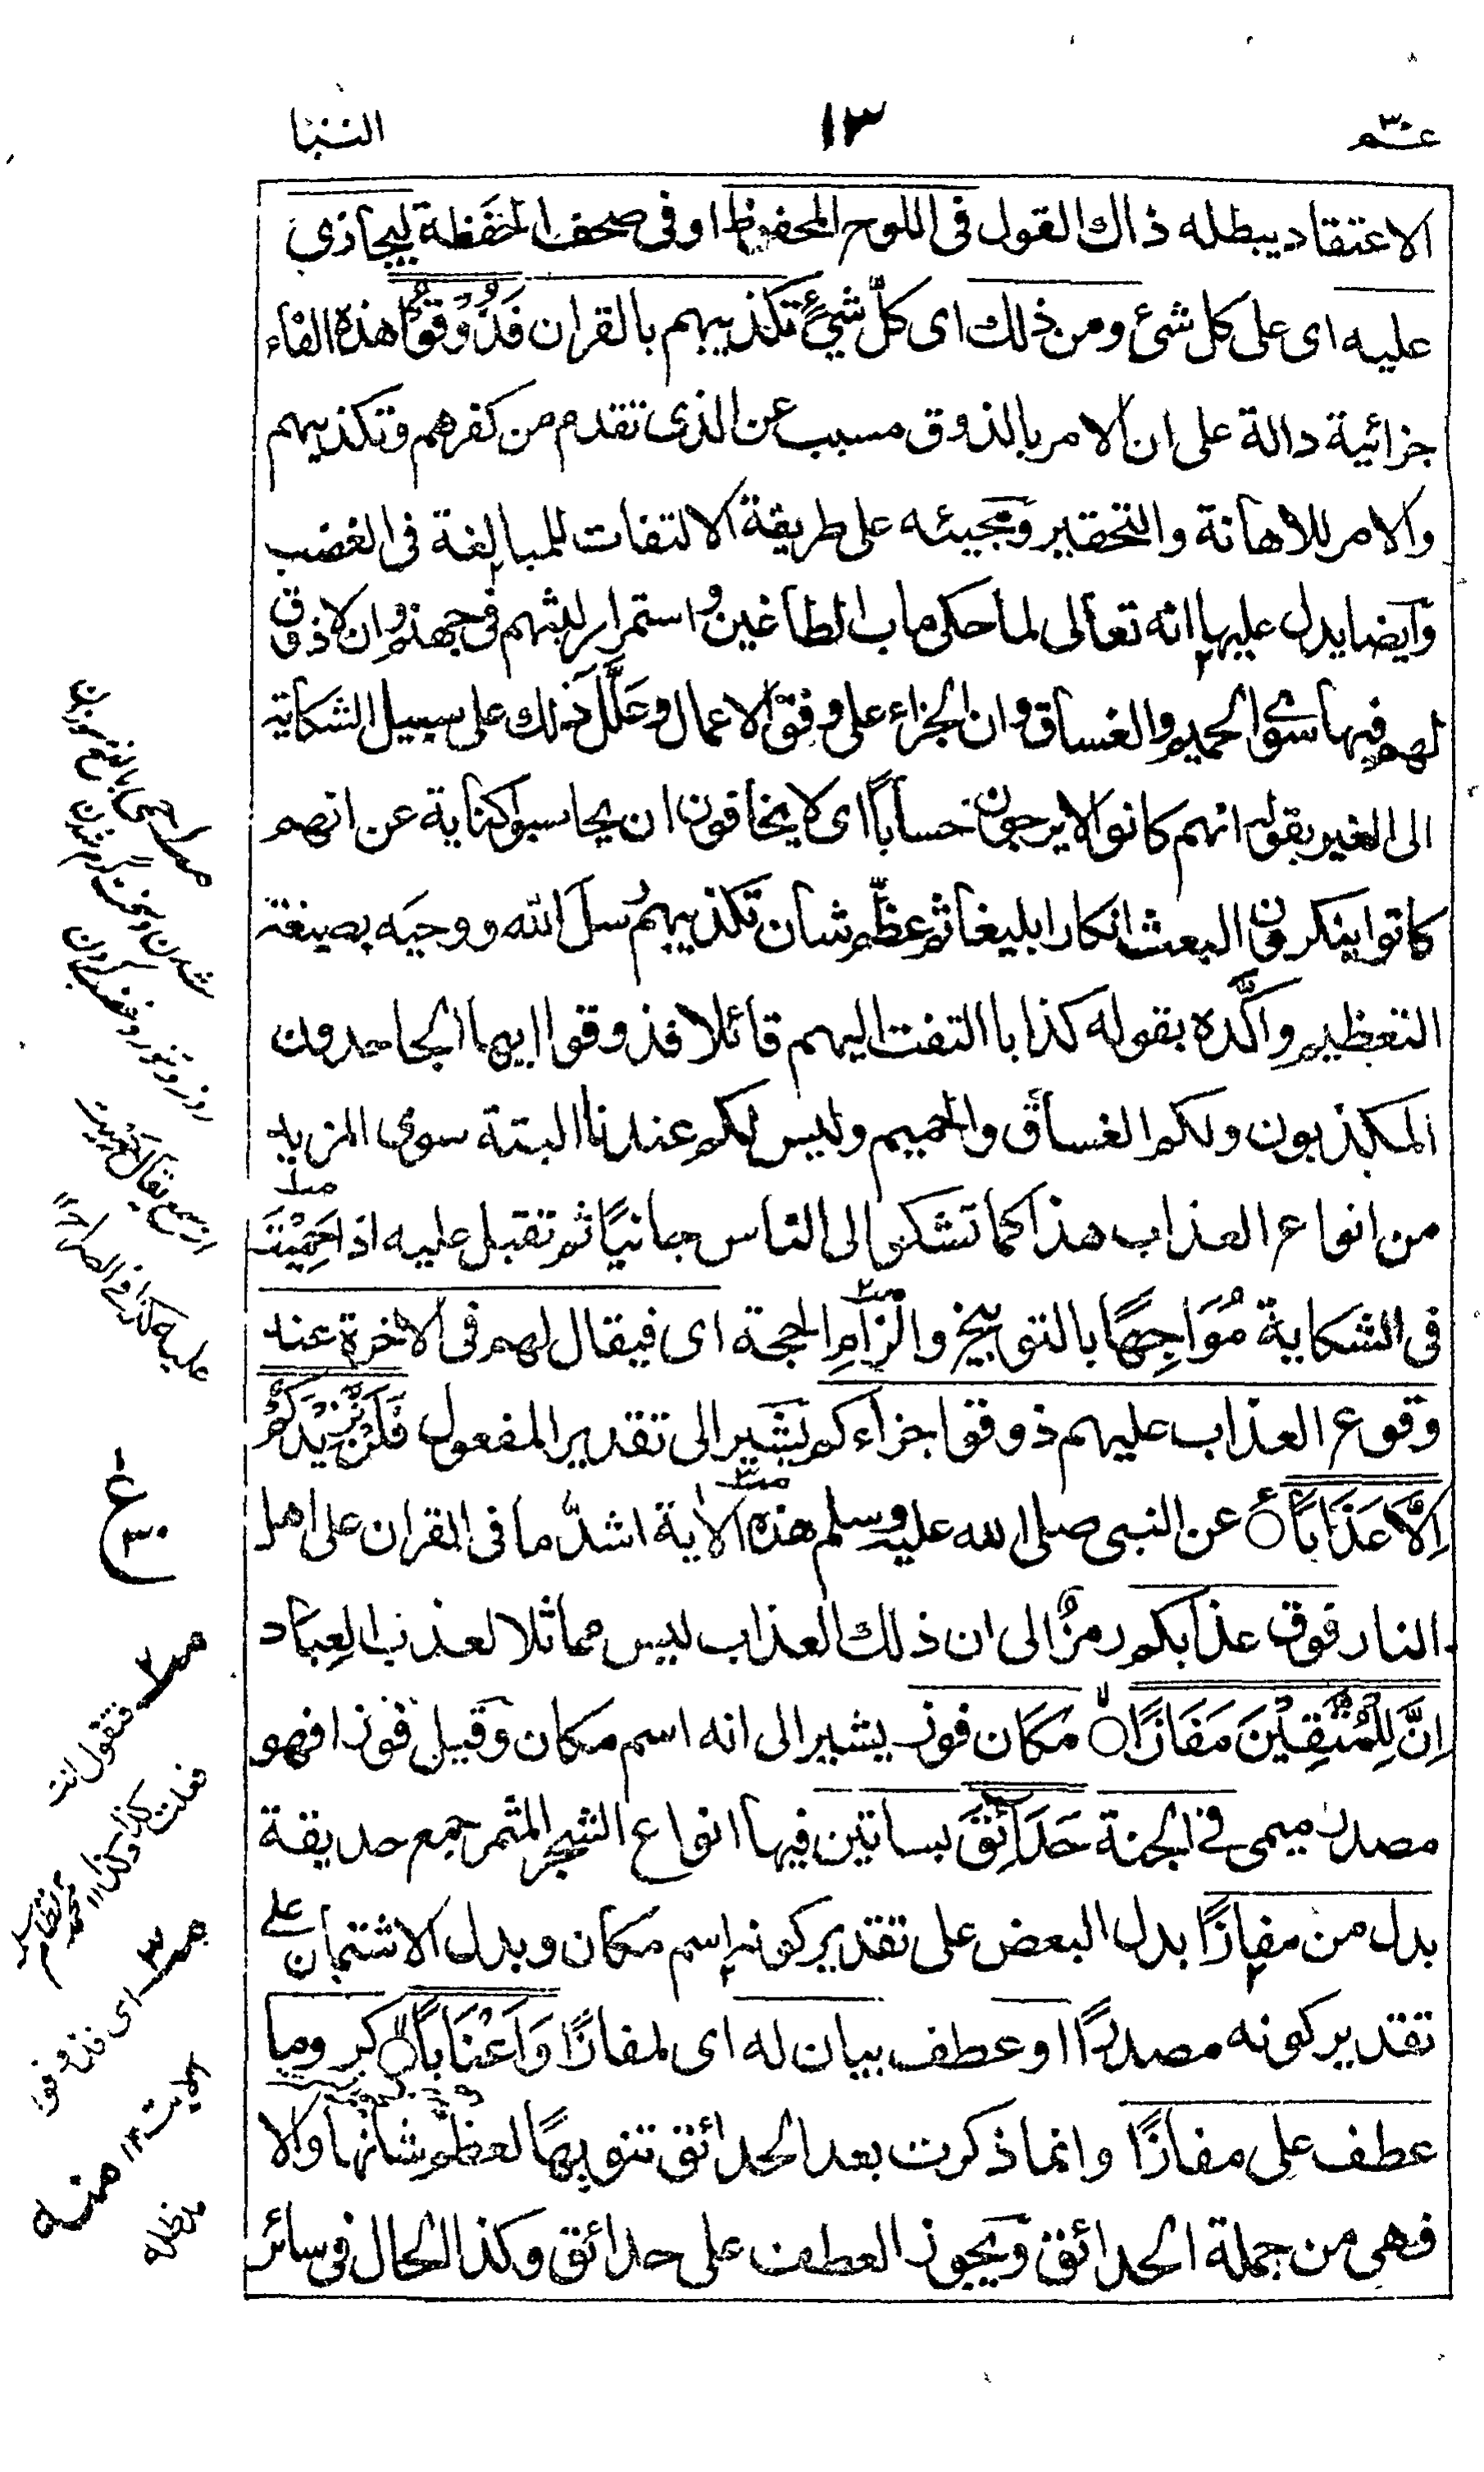 عم ٣٠
١٣
النبا
الاعتقاد يبطله ذاك القول فى اللوح المحفوظ او فى صحف الحفظة ليجازى
عليه اى على كل شئ ومن ذلك اى كلّ شئٍ تكذيبهم بالقران فَذُوقُوْا هذه الفاء
جزائية دالة على ان الامر بالذوق مسبب عن الذى تقدم من كفرهم وتكذيبهم
والامر للاهانة والتحقير ومجيئه على طريقة الالتفات للمبالغة فى الغضب
وايضا يدل عليها انه تعالى لما حكى ماب الطاغين واستمرار لبثهم فى جهنم وان لا ذوق
لهم فيها سوى الحميم والغساق وان الجزاء على وفق الاعمال وعَلَّلَ ذلك على سبيل الشكاية
الى الغير بقوله انهم كانوا لا يرجون حساباً اى لا يخافون ان يحاسبوا كناية عن انهم
كانوا ينكرون البعث انكارا بليغا ثم عظّم شان تكذيبهم رُسل الله ووحيَه بصيغة
التعظيم واكّده بقوله كذابا التفت اليهم قائلا فذوقوا ايها الجاحدون
المكذبون ولكم الغساق والحميم وليس لكم عندنا البتة سوى المزيد
من انواع العذاب هذا كما تشكوا الى الناس جانيًا ثم تقبل عليه اذا حَمِيْتَ
فى الشكاية مُوَاجِهًا بالتوبيخ والزامِ الحجة اى فيقال لهم فى الاخرة عند
وقوع العذاب عليهم ذوقوا جزاءكم يشير الى تقدير المفعول فَلَنْ نَّزِيْدَكُمْ
اِلَّا عَذَابًا ۝ عن النبى صلى الله عليه وسلم هذه الاية اشدّ ما فى القران على اهل
النار فوق عذابكم رمزٌ الى ان ذلك العذاب ليس مماثلا لعذاب العِبَاد
اِنَّ لِلْمُتَّقِيْنَ مَفَازًا ۝ مَكَان فوز يشير الى انه اسم مكان وقيل فوزا فهو
مصدر ميمى فى الجنة حَدَائِقَ بساتين فيها انواع الشجر المثمر جمع حديقة
بدل من مفازًا بدل البعض على تقدير كونه اسم مكان وبدل الاشتمال على
تقدير كونه مصدرًا او عطف بيان له اى لمفازًا وَاَعْنَابًا ۝ كروما
عطف على مفازًا وانما ذكرت بعد الحدائق تنويهًا لعظم شانها والا
فهى من جملة الحدائق ويجوز العطف على حدائق وكذا الحال فى سائر
ع
٣٠
فتقول انت
فعلت كذا وكذا ١٢
اى فذوقوا
منه